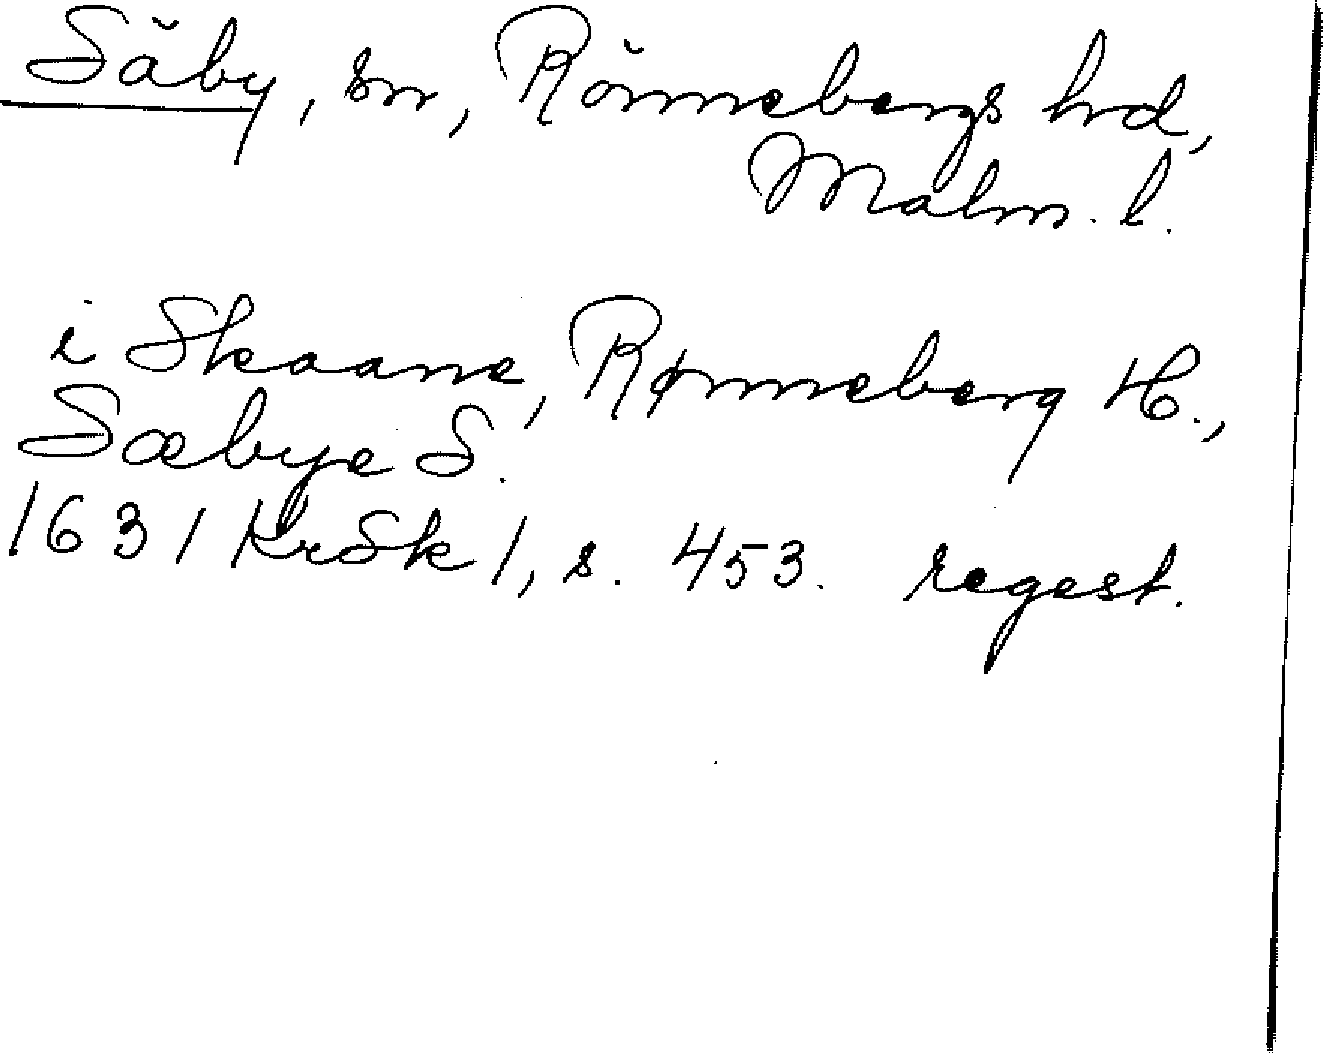 Säby, sn, Rönnebergs hrd,
Malm. l.
i Skaane, Rønneberg H.,
Sæbye S.
1631 KrSk 1, s. 453. regest.